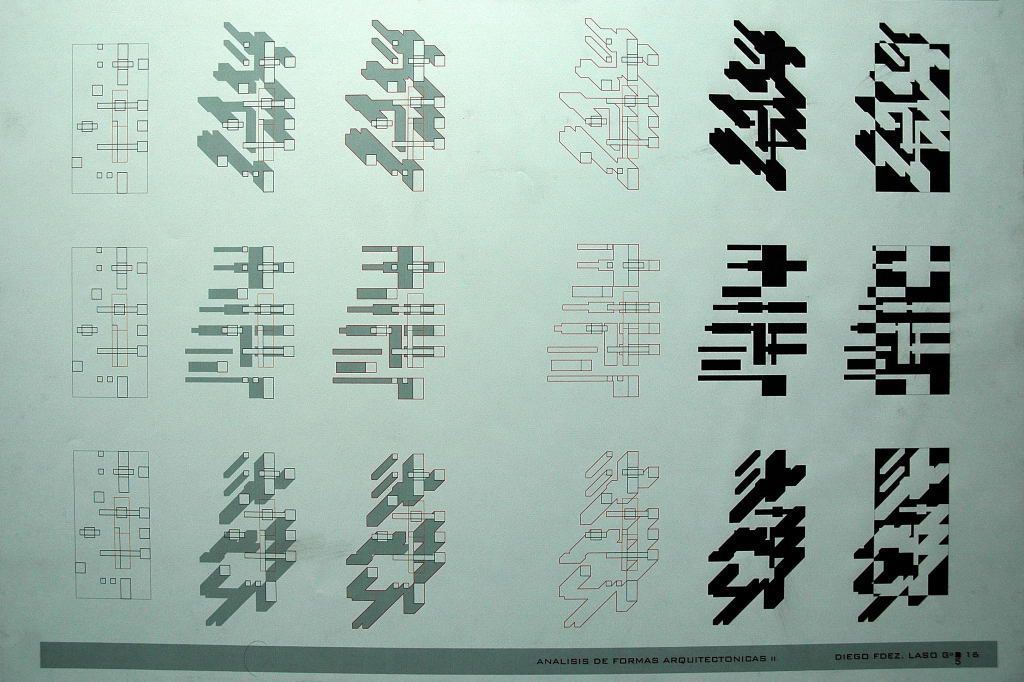 ANALISIS DE FORMAS ARQUITECTONICAS II
DIEGO FDEZ. LASO Gº 5 16